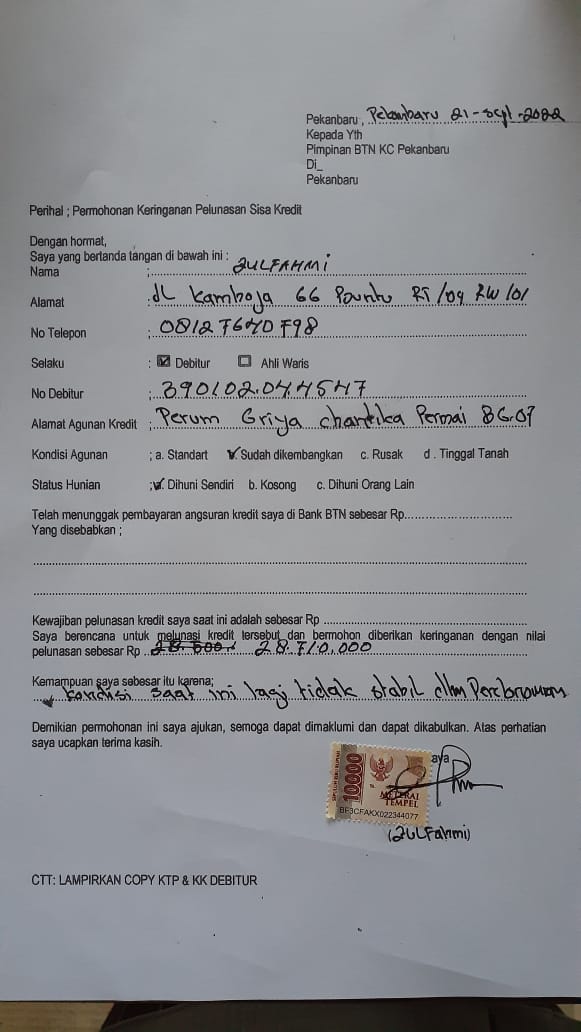 Pekanbaru, Pekanbaru 21-Sept-2022
Kepada Yth
Pimpinan BTN KC Pekanbaru
Di_
Pekanbaru
Perihal ; Permohonan Keringanan Pelunasan Sisa Kredit
Dengan hormat,
Saya yang bertanda tangan di bawah ini :
Nama : ZULFAHMI
Alamat : JL Kamboja 66 RT/09 RW/01
No Telepon : 08127640798
Selaku : ☑ Debitur ☐ Ahli Waris
No Debitur : 390102.04.4547
Alamat Agunan Kredit ; Perum Griya chantika Permai BG.07
Kondisi Agunan ; a. Standart ✓ Sudah dikembangkan c. Rusak d . Tinggal Tanah
Status Hunian ;✓. Dihuni Sendiri b. Kosong c. Dihuni Orang Lain
Telah menunggak pembayaran angsuran kredit saya di Bank BTN sebesar Rp..............................
Yang disebabkan ;
Kewajiban pelunasan kredit saya saat ini adalah sebesar Rp ..............................
Saya berencana untuk melunasi kredit tersebut dan bermohon diberikan keringanan dengan nilai
pelunasan sebesar Rp .. 28.710.000
Kemampuan saya sebesar itu karena;
kondisi saat ini lagi tidak stabil
Demikian permohonan ini saya ajukan, semoga dapat dimaklumi dan dapat dikabulkan. Atas perhatian
saya ucapkan terima kasih.
aya
10000
METERAI
TEMPEL
BF3CFAKX022344077
(ZULFahmi)
CTT: LAMPIRKAN COPY KTP & KK DEBITUR